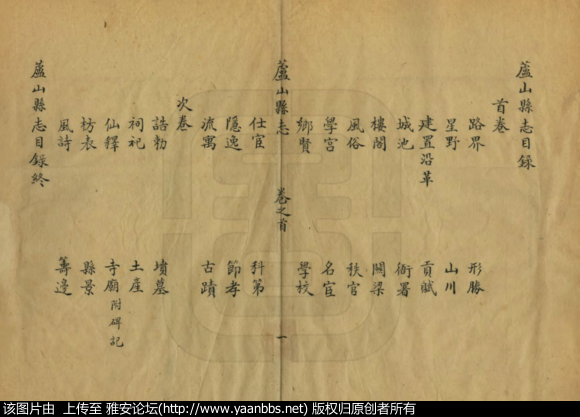 蘆山縣志目錄
首卷
路界 形勝
星野 山川
建置沿革 貢賦
城池 衙署
樓閣 關梁
風俗 秩官
學宮 名宦
鄉賢 學校
蘆山縣志 卷之首 一
仕宦 科第
隱逸 節孝
流寓 古蹟
次卷
誥勅 墳墓
祠祀 土産
仙釋 寺廟附碑記
坊表 縣景
風詩 籌邊
蘆山縣志目錄終
该图片由 上传至 雅安论坛(http://www.yaanbbs.net) 版权归原创者所有